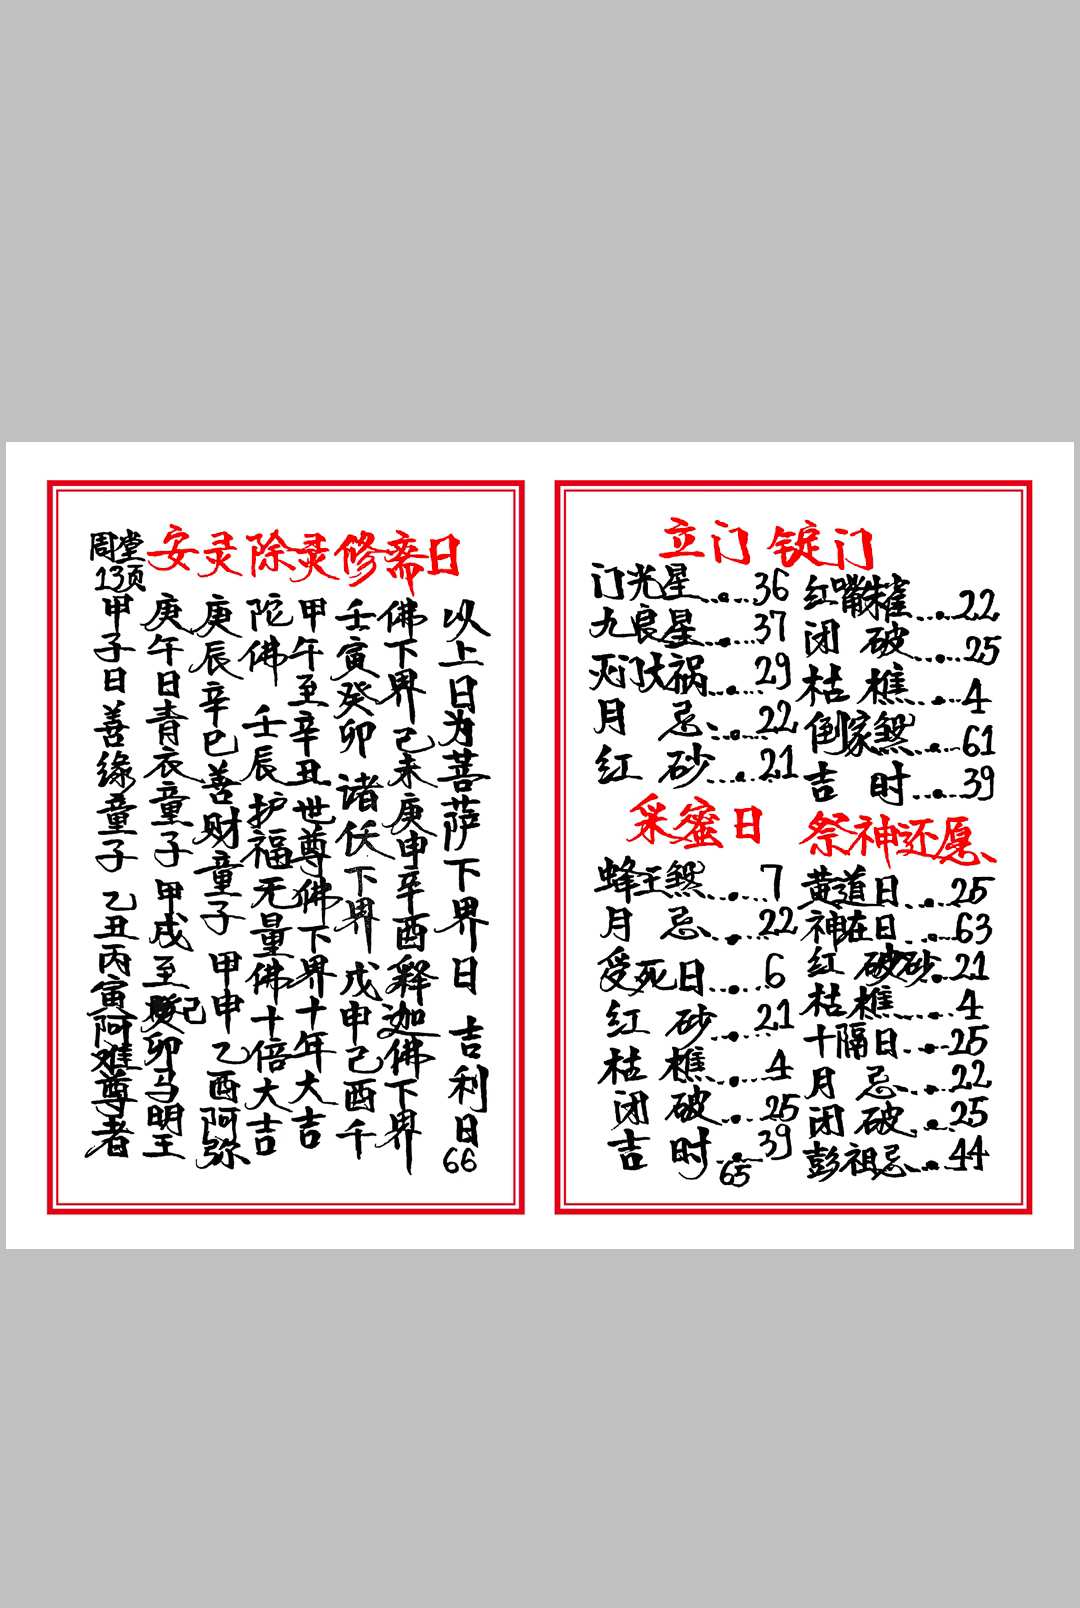 安灵除灵修斋日
周堂
13页
甲子日善缘童子 乙丑丙寅阿难尊者
庚午日青衣童子 甲戌至癸己卯马明王
庚辰辛巳善财童子 甲申乙酉阿弥
陀佛 壬辰护福无量佛十倍大吉
甲午至辛丑世尊佛下界十年大吉
壬寅癸卯 诸佞下界 戊申己酉千
佛下界 己未庚申辛酉释迦佛下界
以上日为菩萨下界日 吉利日
66
立门 锭门
门光星......36
九良星......37
灭门大祸......29
月 忌......22
红 砂......21
红嘴朱雀......22
闭 破......25
枯 樵......4
倒家煞......61
吉 时......39
采蜜日
蜂王煞......7
月 忌......22
受死日......6
红 砂......21
枯 樵......4
闭 破......25
吉 时......39
祭神还愿
黄道日......25
神在日......63
红 破砂..21
枯樵......4
十隔日......25
月 忌......22
闭 破......25
彭祖忌......44
65